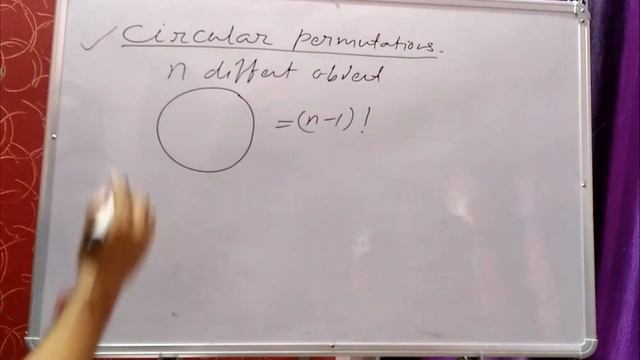 ✓ Circular permutations.
n diffent object
= (n-1)!